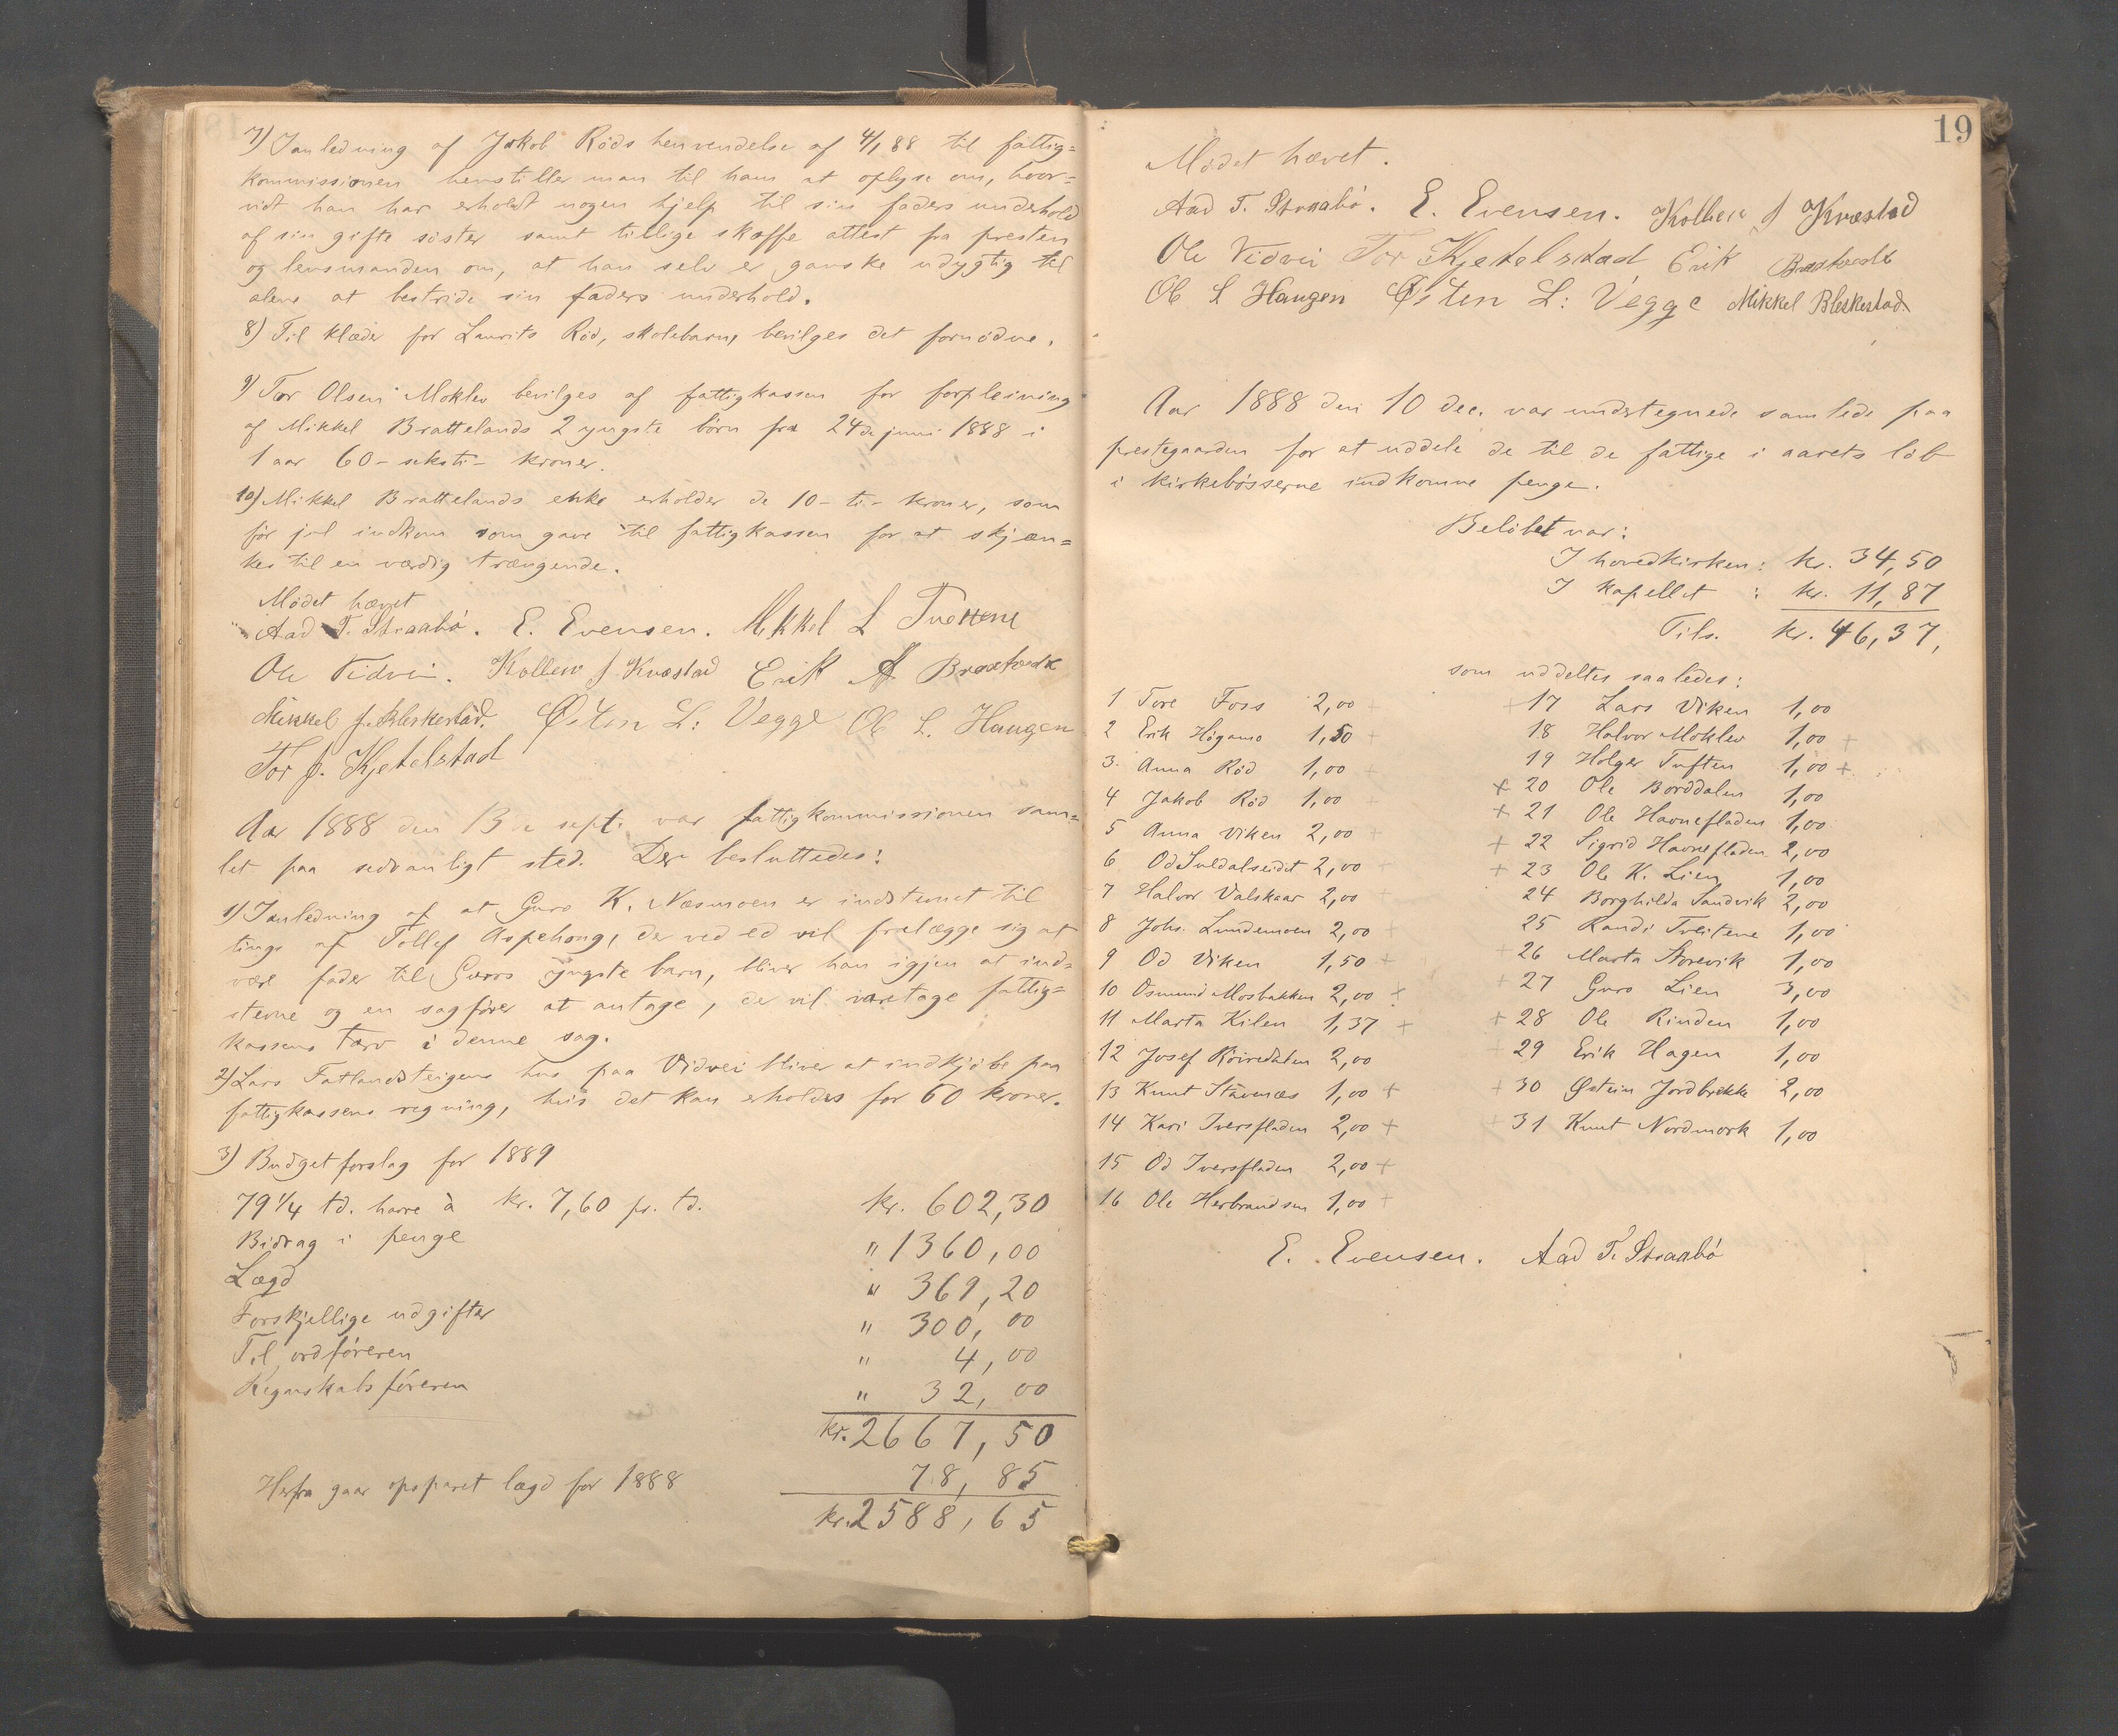 7) I anledning af Jakob Røds henvendelse af 4/1 88 til fattig=
kommissionen henstiller man til ham at oplyse om, hvor=
vidt han har erholdt nogen hjelp til sin faders underhold
af sin gifte søster samt tillige skaffe attest fra presten
og lensmanden om, at han selv er ganske udygtig til
alene at bestride sin faders underhold.
8) Til klæder for Laurits Rød, skolebarn, bevilges det fornødne.
9) Tor Olsen Moklev bevilges af fattigkassen for forpleining
af Mikkel Brattelands 2 yngste børn fra 24de juni 1888 i
1 aar 60 - seksti - kroner.
10) Mikkel Brattelands enke erholder de 10 - ti - kroner, som
før jul indkom som gave til fattigkassen for at skjæn=
kes til en værdig trængende.
Mødet hævet
Aad T. Straabø. E. Evensen. Mikkel L Tveitene
Ole Vidvei. Kolleiv J. Kvæstad Erik A Bråstvedt
Mikkel J. Bleskestad. Østen L: Vegge Ole L. Haugen
Tor J. Kjetelstad
Aar 1888 den 13de sept. var fattigkommissionen sam=
let paa sedvanligt sted. Der besluttedes:
1) I anledning af at Guro K. Næsmoen er indstemt til
tinge af Tollef Aspehoug, der ved ed vil fralægge sig at
være fader til Guros yngste barn, bliver han igjen at ind=
stevne og en sagfører at antage, der vil varetage fattig=
kassens tarv i denne sag.
2) Lars Fatlandsteigens hus paa Vidvei bliver at indkjøbe paa
fattigkassens regning, hvis det kan erholdes for 60 kroner.
3) Budgetforslag for 1889
79 1/4 td. havre à kr. 7,60 pr. td. kr. 602,30
Bidrag i penge " 1360,00
Lægd " 369,20
Forskjellige udgifter " 300,00
Til ordføreren " 4,00
Regnskabsføreren " 32,00
kr. 2667,50
Herfra gaar opsparet lægd for 1888 78,85
kr. 2588,65
19
Mødet hævet.
Aad T. Straabø. E. Evensen. Kolleiv J Kvæstad
Ole Vidvei Tor Kjetelstad Erik Bråstvedt
Ole L Haugen Østen L: Vegge Mikkel Bleskestad.
Aar 1888 den 10 dec. var undertegnede samlede paa
prestegaarden for at uddele de til de fattige i aarets løb
i kirkebøsserne indkomne penge.
Beløbet var:
I hovedkirken: kr. 34,50
I kapellet : kr. 11,87
Tils. kr. 46,37,
som uddeltes saaledes:
1 Tore Foss 2,00 +
2 Erik Høgamo 1,50 +
3. Anna Rød 1,00 +
4 Jakob Rød 1,00 +
5 Anna Viken 2,00 +
6 Od Suldalseidet 2,00
7 Halvor Valskaar 2,00
8 Johs. Lundemoen 2,00 +
9 Od Viken 1,50 +
10 Osmund Mosbakken 2,00 +
11 Marta Kilen 1,37 +
12 Josef Røiredalen 2,00
13 Knut Stavenæs 1,00 +
14 Kari Iversfladen 2,00 +
15 Od Iversfladen 2,00 +
16 Ole Herbrandsen 1,00 +
+ 17 Lars Viken 1,00
18 Halvor Moklev 1,00 +
19 Holger Tuften 1,00 +
+ 20 Ole Borddalen 1,00
+ 21 Ole Havnefladen 1,00
+ 22 Sigrid Havnefladen 2,00
+ 23 Ole K. Lien 1,00
24 Borghilda Sandvik 2,00
25 Randi Tveitene 1,00
+ 26 Marta Storevik 1,00
+ 27 Guro Lien 3,00
+ 28 Ole Rinden 1,00
29 Erik Hagen 1,00
+ 30 Østein Jordbrekke 2,00
+ 31 Knut Nordmork 1,00
E. Evensen. Aad T. Straabø